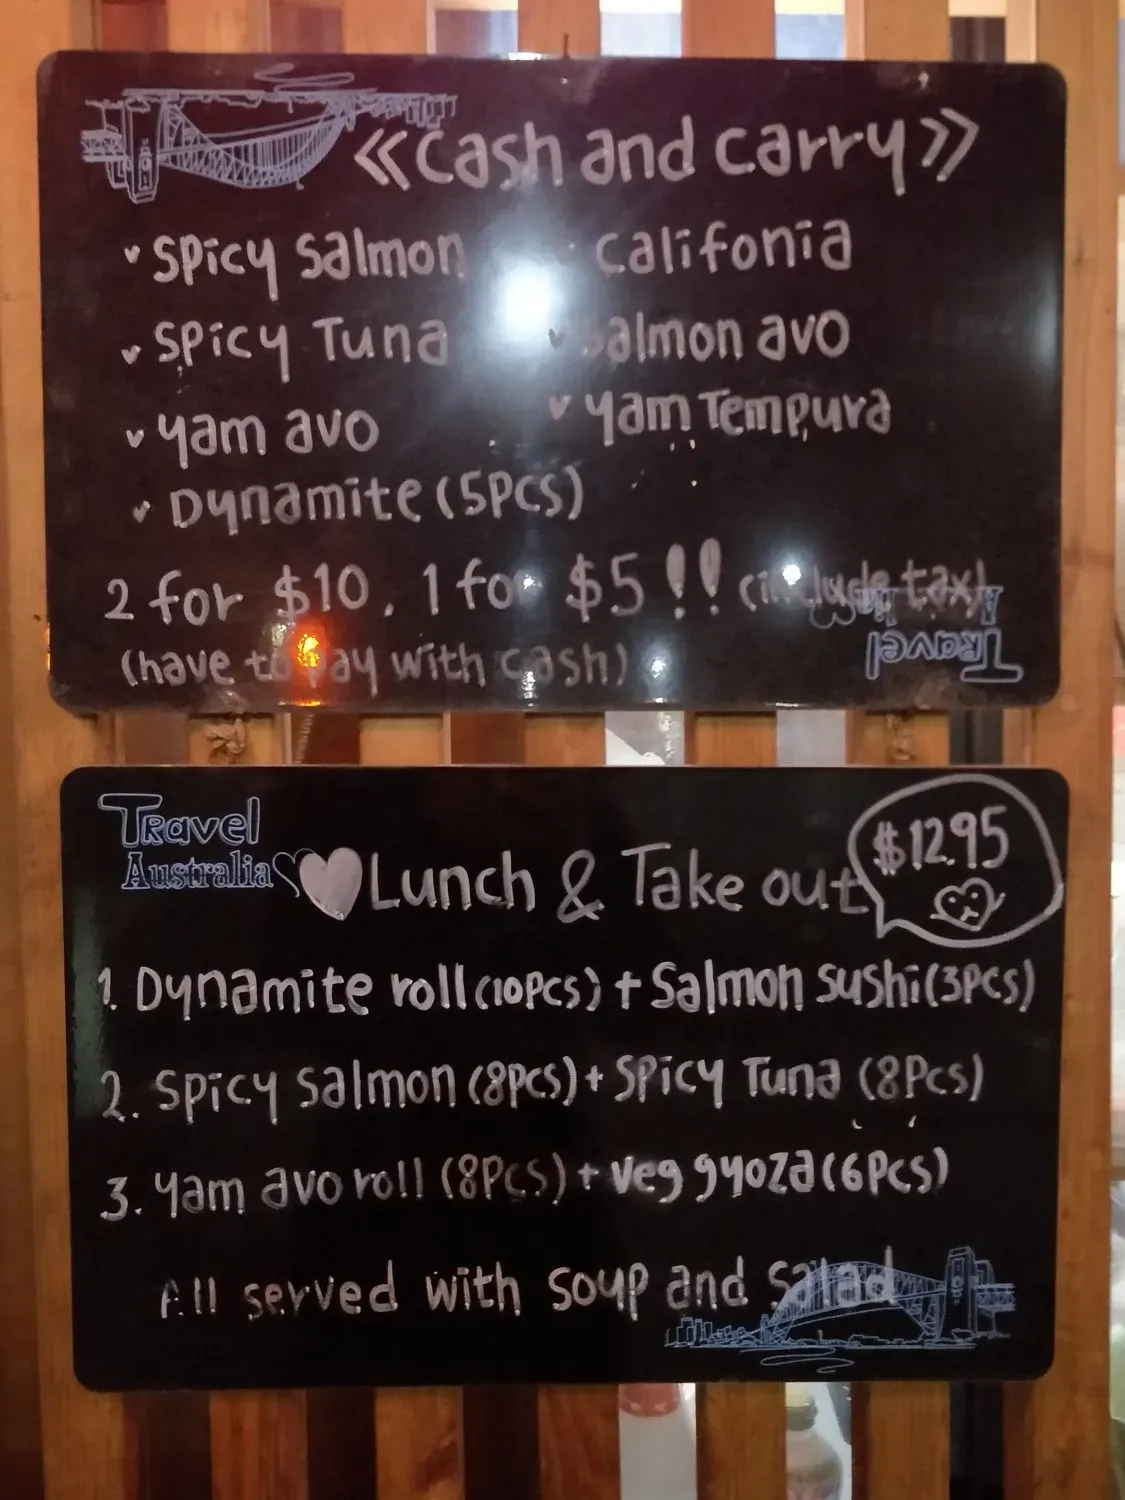 <<cash and carry>>
spicy salmon califonia
spicy Tuna salmon avo
yam avo yam Tempura
Dynamite (5pcs)
2 for $10. 1 for $5 !! (include tax)
(have to pay with cash)
Travel
Travel
Australia
Lunch & Take out $12.95
1. Dynamite roll (10pcs) + salmon sushi (3pcs)
2. spicy salmon (8pcs) + spicy Tuna (8pcs)
3. yam avo roll (8pcs) + veg gyoza (6pcs)
All served with soup and salad